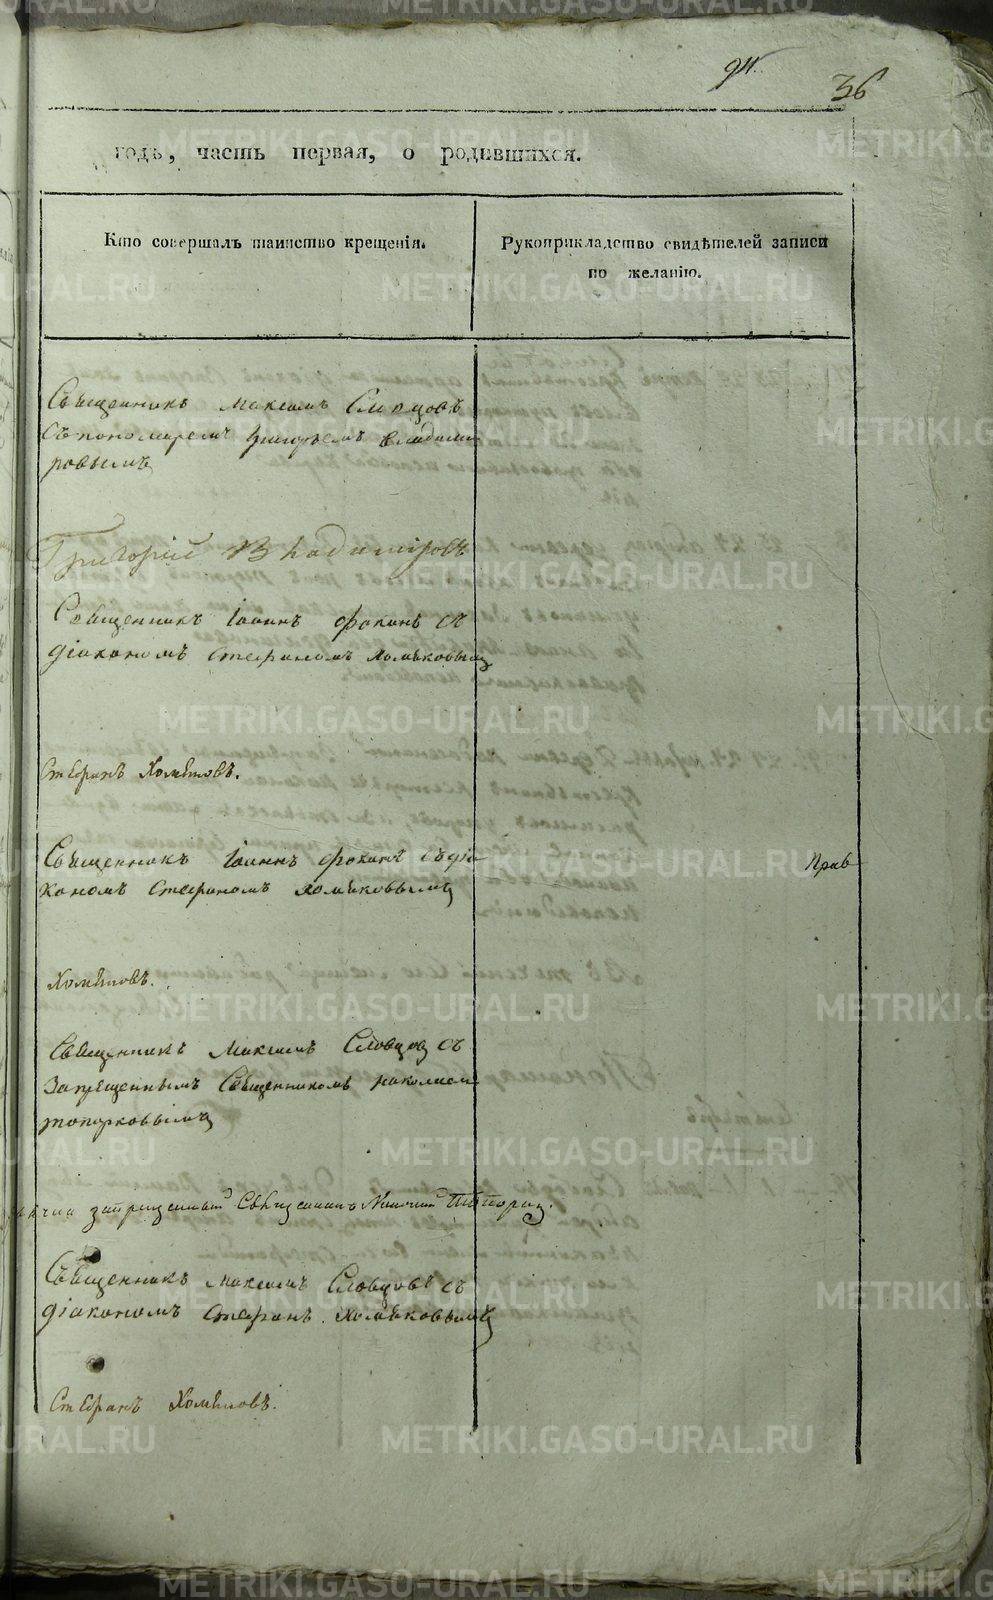 94
36
годъ, часть первая, о родившихся.
Кто совершалъ таинство крещенія.
Рукоприкладство свидѣтелей записи
по желанію.
Священникъ Максимъ Словцовъ
съ пономаремъ Григорьемъ Владими
ровымъ
Григорій Владиміровъ
Священникъ Іоаннъ Фокинъ съ
діакономъ Стефаномъ Хомяковымъ
Стефанъ Хомяковъ.
Священникъ Іоаннъ Фокинъ съ діа
кономъ Стефаномъ Хомяковымъ
Прав
Хомяковъ.
Священникъ Максимъ Словцовъ съ
Запрещеннымъ Священникомъ
топорковымъ
запрещенный Священникъ
Священникъ Максимъ Словцовъ съ
діакономъ Стефанъ Хомяковымъ
Стефанъ Хомяковъ.
METRIKI.GASO-URAL.RU